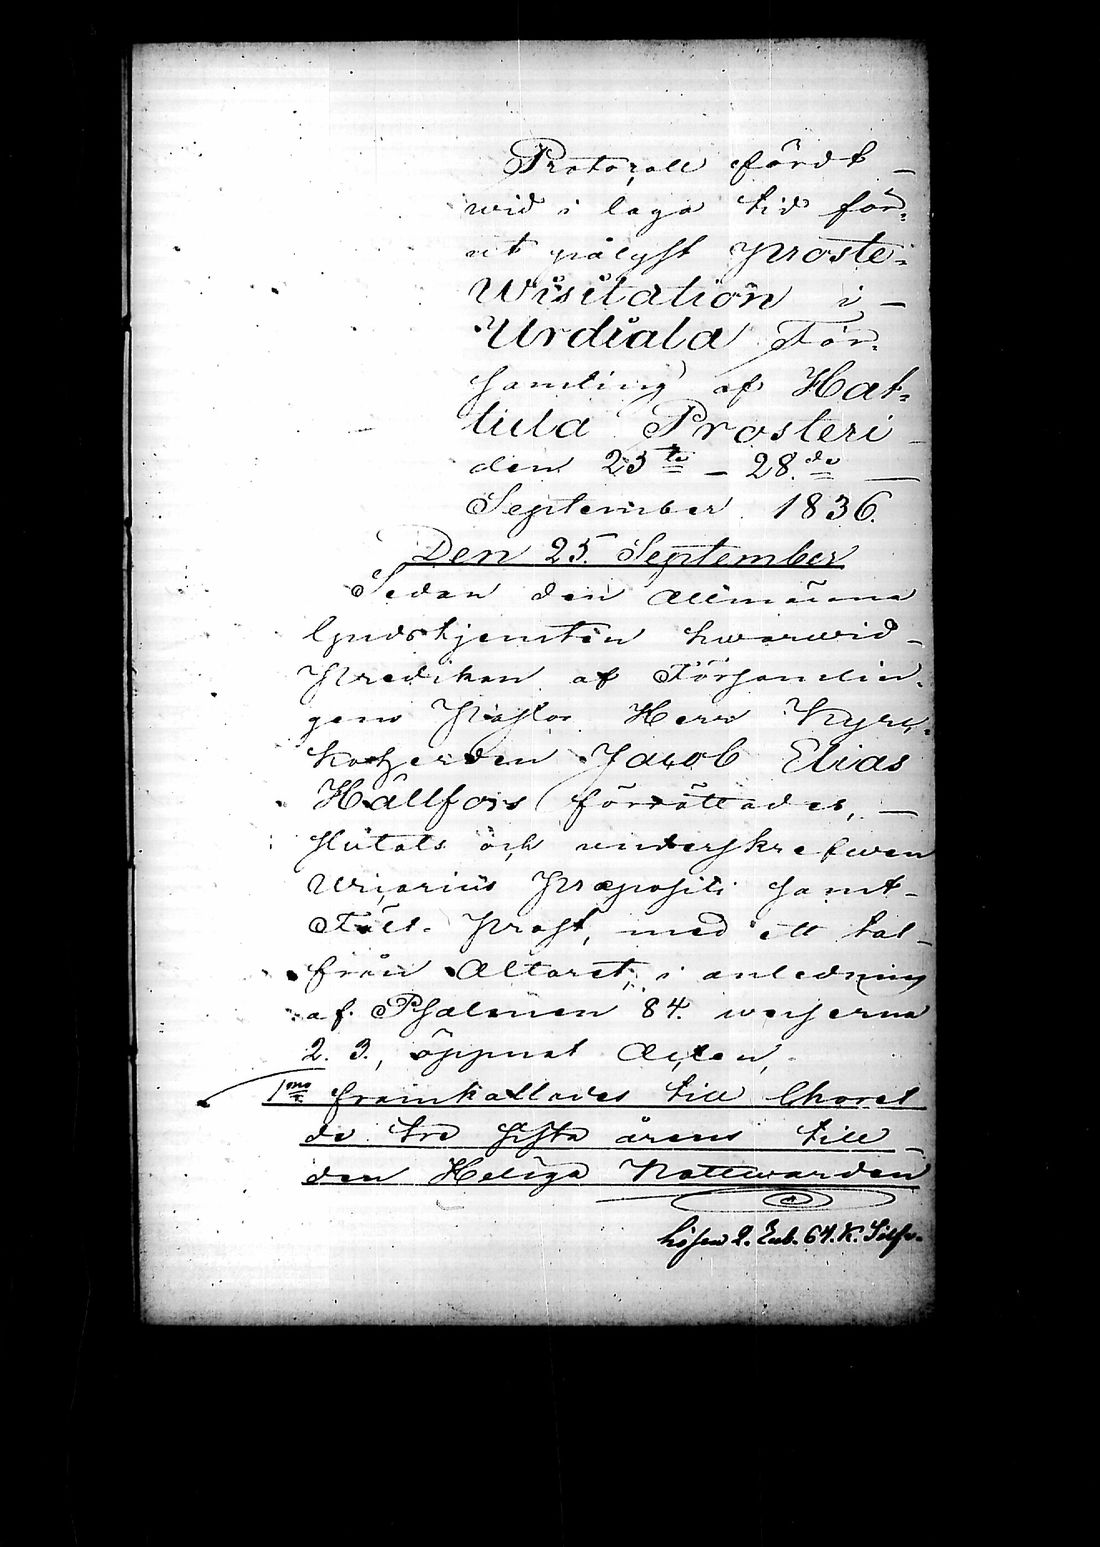 Protocoll fördt
wid i laga tid för-
ut pålyst Proste-
Wisitation i
Urdiala För-
samling af Hat-
tula Prosteri
den 25te – 28de
September 1836.
Den 25. September
Sedan den Allmänna
Gudstjensten hwarwid
Predikan af Församlin-
gens Pastor Herr Kyrc-
koherden Jacob Elias
Hällfors förrättades,
slutats och underskrefwen
Vicarius Præpositi samt
Fält-Prost, med ett tal
från Altaret, i anledning
af Psalmen 84. werserna
2. 3., öppnat Acten,
1mo framkallades till Choret
de tre sista årens till
den Heliga Nattwarden